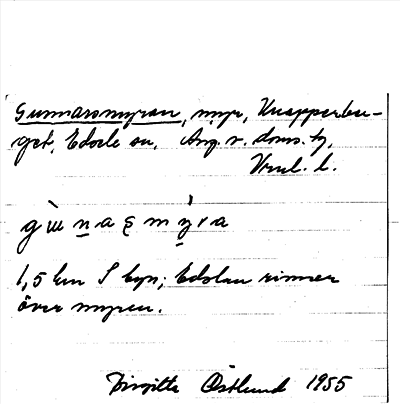 Gunnarsmyran, myr, Knapperber-
get, Edsele sn, Ång. v. doms. h,
Vnl. l.
gu̇̀n̲aʂmỳ̲ra
1,5 km S byn; Edslan rinner
över myren.
Birgitta Östlund 1955